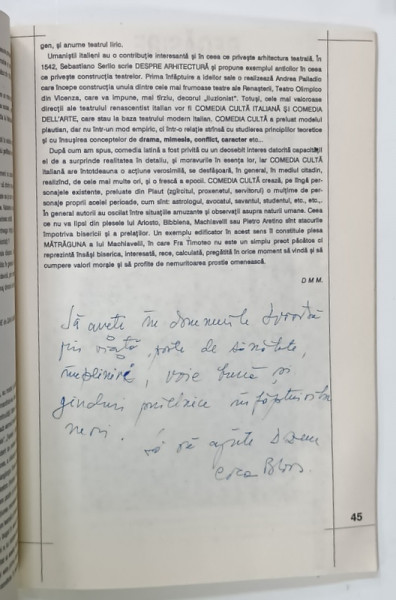 gen, şi anume teatrul liric.
Umaniştii italieni au o contribuţie interesantă şi în ceea ce priveşte arhitectura teatrală. În
1542, Sebastiano Serlio scrie DESPRE ARHITECTURĂ şi propune exemplul anticilor în ceea
ce priveşte construcţia teatrelor. Prima înfăptuire a ideilor sale o realizează Andrea Palladio
care începe construcţia unuia dintre cele mai frumoase teatre ale Renaşterii, Teatro Olimpico
din Vicenza, care va impune, mai tîrziu, decorul „iluzionist”. Totuşi, cele mai valoroase
direcţii ale teatrului renascentist italian vor fi COMEDIA CULTĂ ITALIANĂ ŞI COMEDIA
DELL'ARTE, care stau la baza teatrului modern italian. COMEDIA CULTĂ a preluat modelul
plautian, dar nu într-un mod empiric, ci într-o relaţie strînsă cu studierea principiilor teoretice
şi cu însuşirea conceptelor de dramă, mimesis, conflict, caracter etc...
După cum am spus, comedia latină a fost privită cu un deosebit interes datorită capacităţii
ei de a surprinde realitatea în detaliu, şi moravurile în esenţa lor, iar COMEDIA CULTĂ
italiană are întotdeauna o acţiune verosimilă, se desfăşoară, în general, în mediul citadin,
realizînd, de cele mai multe ori, şi o frescă a epocii. COMEDIA CULTĂ creează, pe lîngă per-
sonajele existente, preluate din Plaut (zgîrcitul, proxenetul, servitorul) o mulţime de per-
sonaje proprii acelei perioade, cum sînt: astrologul, avocatul, savantul, studentul, etc., etc..,
În general autorii au oscilat între situaţiile amuzante şi observaţii asupra naturii umane. Ceea
ce nu va lipsi din piesele lui Ariosto, Bibbiena, Machiavelli sau Pietro Aretino sînt atacurile
împotriva bisericii şi a prelaţilor. Un exemplu edificator în acest sens îl constituie piesa
MĂTRĂGUNA a lui Machiavelli, în care Fra Timoteo nu este un simplu preot păcătos ci
reprezintă însăşi biserica, interesată, rece, calculată, pregătită în orice moment să vîndă şi să
cumpere valori morale şi să profite de nemuritoarea prostie omenească.
D.M.M.
Să aveţi în domeniile
viaţă, de sănătate,
împlinire, voie bună şi
gînduri
să vă ajute
45